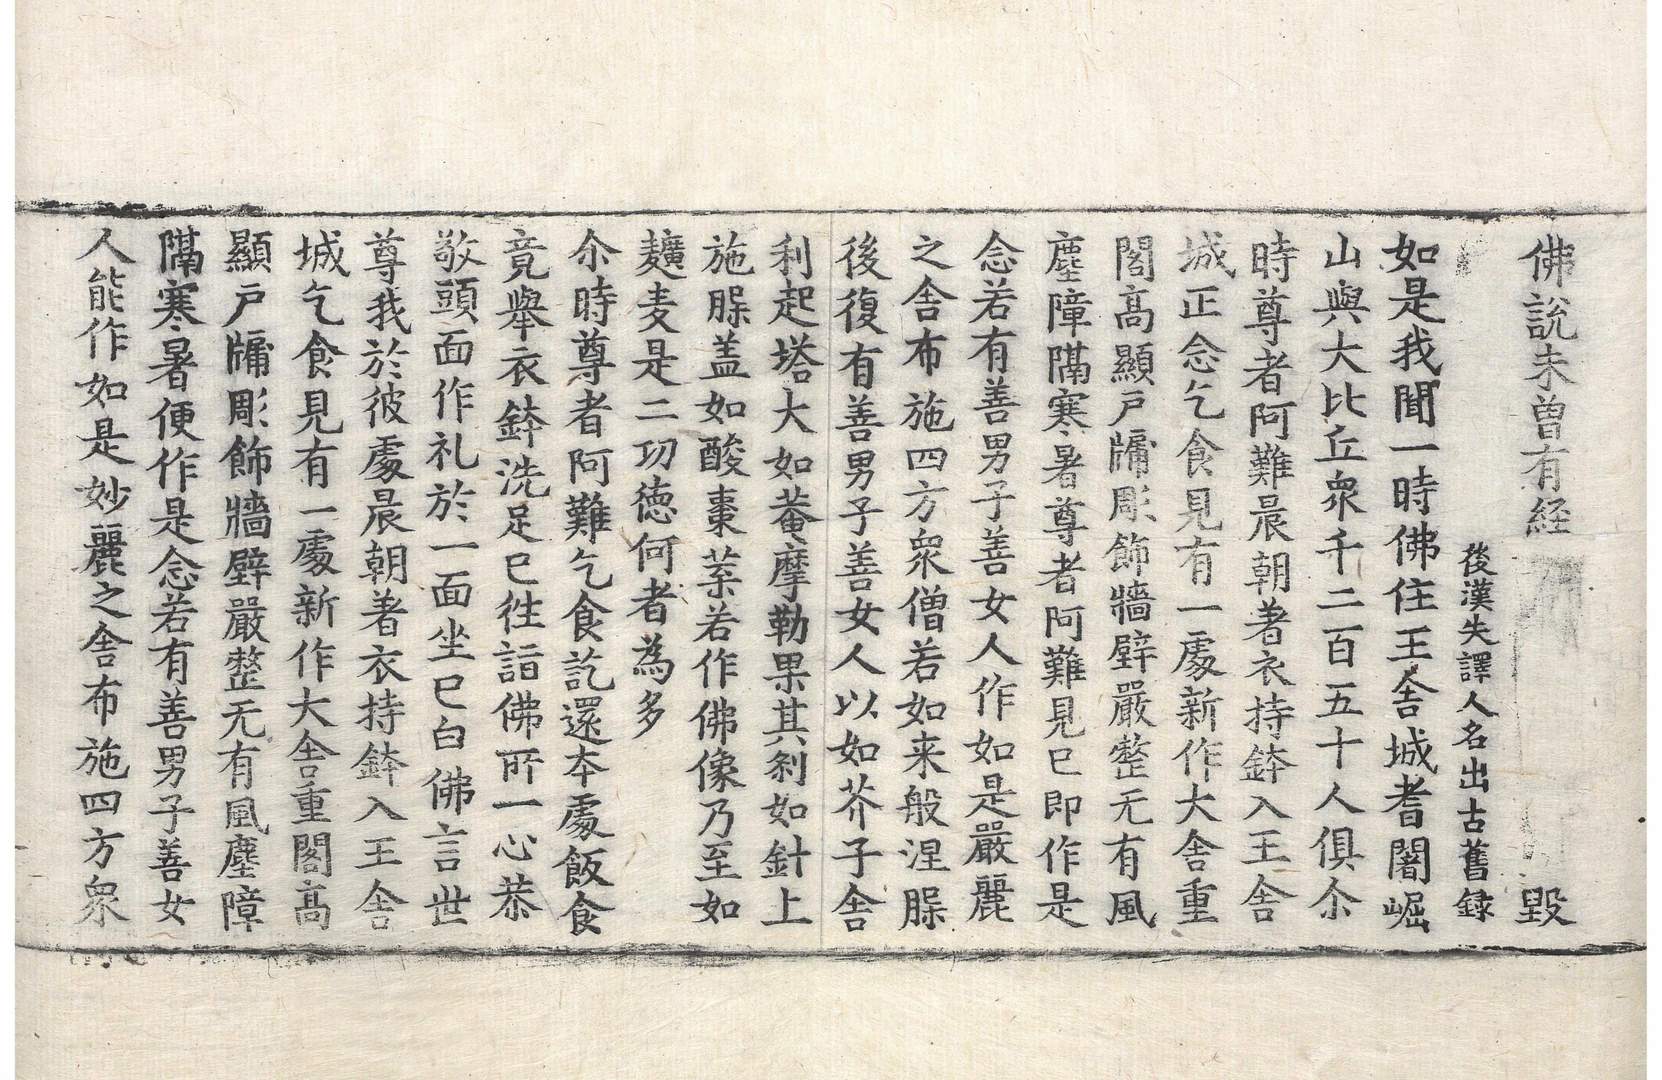 佛說未曾有経 毀
後漢失譯人名出古舊録
如是我聞一時佛住王舎城耆闍崛
山與大比丘衆千二百五十人俱尒
時尊者阿難晨朝著衣持鉢入王舎
城正念乞食見有一處新作大舎重
閣高顯戸牖彫飾牆壁嚴整无有風
塵障隔寒暑尊者阿難見已即作是
念若有善男子善女人作如是嚴麗
之舎布施四方衆僧若如来般涅𣵀
後復有善男子善女人以如芥子舎
利起塔大如菴摩勒果其刹如針上
施𣵀盖如酸棗葉若作佛像乃至如
䵃麦是二功徳何者為多
尒時尊者阿難乞食訖還本處飯食
竟舉衣鉢洗足已徃詣佛所一心恭
敬頭面作礼於一面坐已白佛言世
尊我於彼處晨朝著衣持鉢入王舎
城乞食見有一處新作大舎重閣高
顯戸牖彫飾牆壁嚴整无有風塵障
隔寒暑便作是念若有善男子善女
人能作如是妙麗之舎布施四方衆